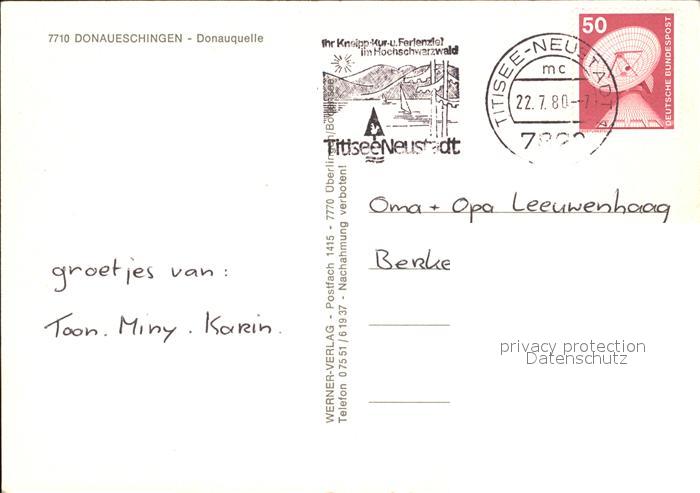 7710 DONAUESCHINGEN - Donauquelle
Ihr Kneipp-Kur-u. Ferienziel
im Hochschwarzwald
TitiseeNeustadt
TITISEE-NEUSTADT
mc
22.7.80
50
DEUTSCHE BUNDESPOST
WERNER-VERLAG - Postfach 1415 - 7770 Überlingen/Bodensee
Telefon 07551/61937 - Nachahmung verboten!
Oma + Opa Leeuwenhaag
groetjes van:
Toon. Miny. Karin.
privacy protection
Datenschutz